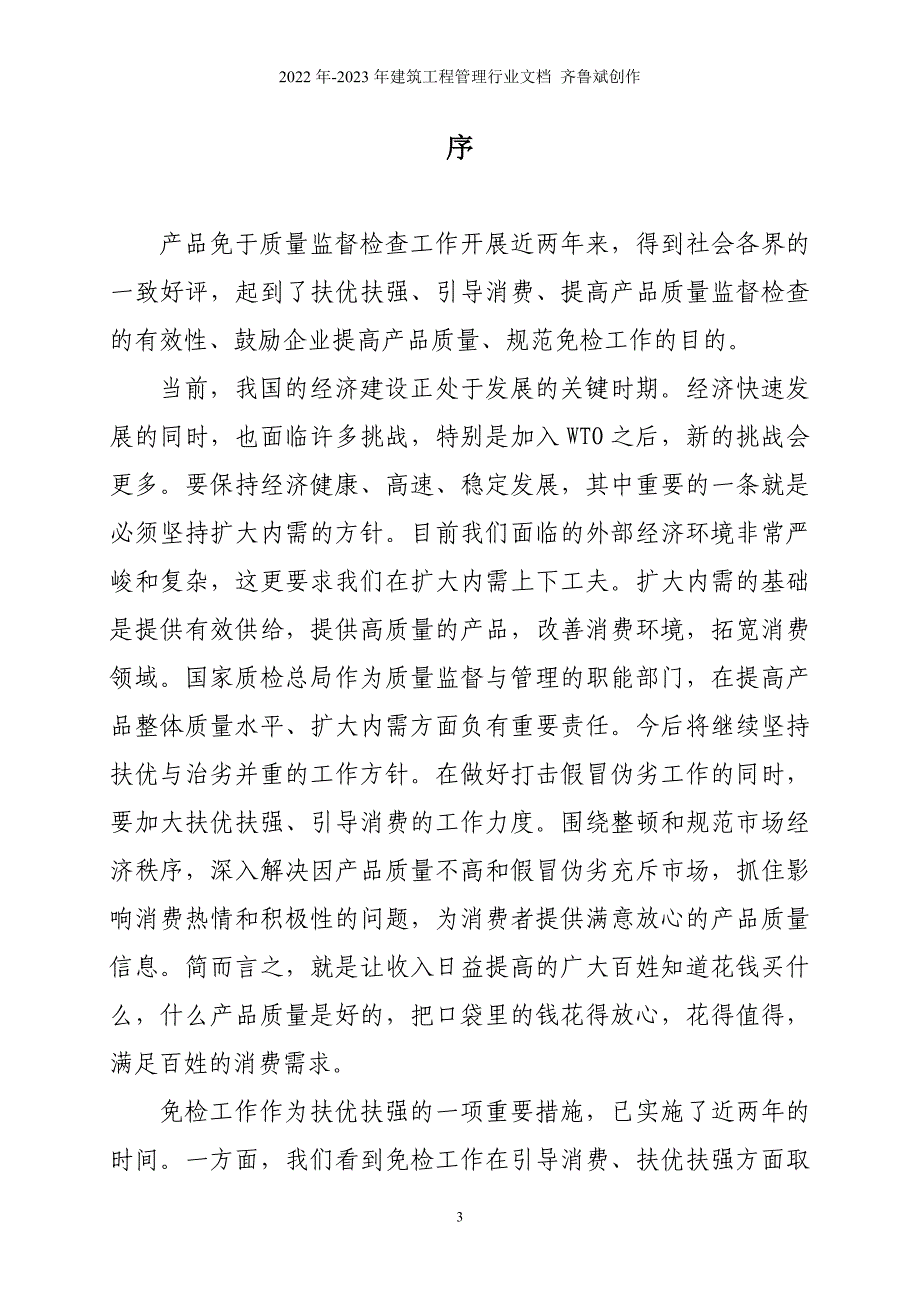 2022 年-2023 年建筑工程管理行业文档 齐鲁斌创作
序
产品免于质量监督检查工作开展近两年来，得到社会各界的
一致好评，起到了扶优扶强、引导消费、提高产品质量监督检查
的有效性、鼓励企业提高产品质量、规范免检工作的目的。
当前，我国的经济建设正处于发展的关键时期。经济快速发
展的同时，也面临许多挑战，特别是加入 WTO 之后，新的挑战会
更多。要保持经济健康、高速、稳定发展，其中重要的一条就是
必须坚持扩大内需的方针。目前我们面临的外部经济环境非常严
峻和复杂，这更要求我们在扩大内需上下工夫。扩大内需的基础
是提供有效供给，提供高质量的产品，改善消费环境，拓宽消费
领域。国家质检总局作为质量监督与管理的职能部门，在提高产
品整体质量水平、扩大内需方面负有重要责任。今后将继续坚持
扶优与治劣并重的工作方针。在做好打击假冒伪劣工作的同时，
要加大扶优扶强、引导消费的工作力度。围绕整顿和规范市场经
济秩序，深入解决因产品质量不高和假冒伪劣充斥市场，抓住影
响消费热情和积极性的问题，为消费者提供满意放心的产品质量
信息。简而言之，就是让收入日益提高的广大百姓知道花钱买什
么，什么产品质量是好的，把口袋里的钱花得放心，花得值得，
满足百姓的消费需求。
免检工作作为扶优扶强的一项重要措施，已实施了近两年的
时间。一方面，我们看到免检工作在引导消费、扶优扶强方面取
3